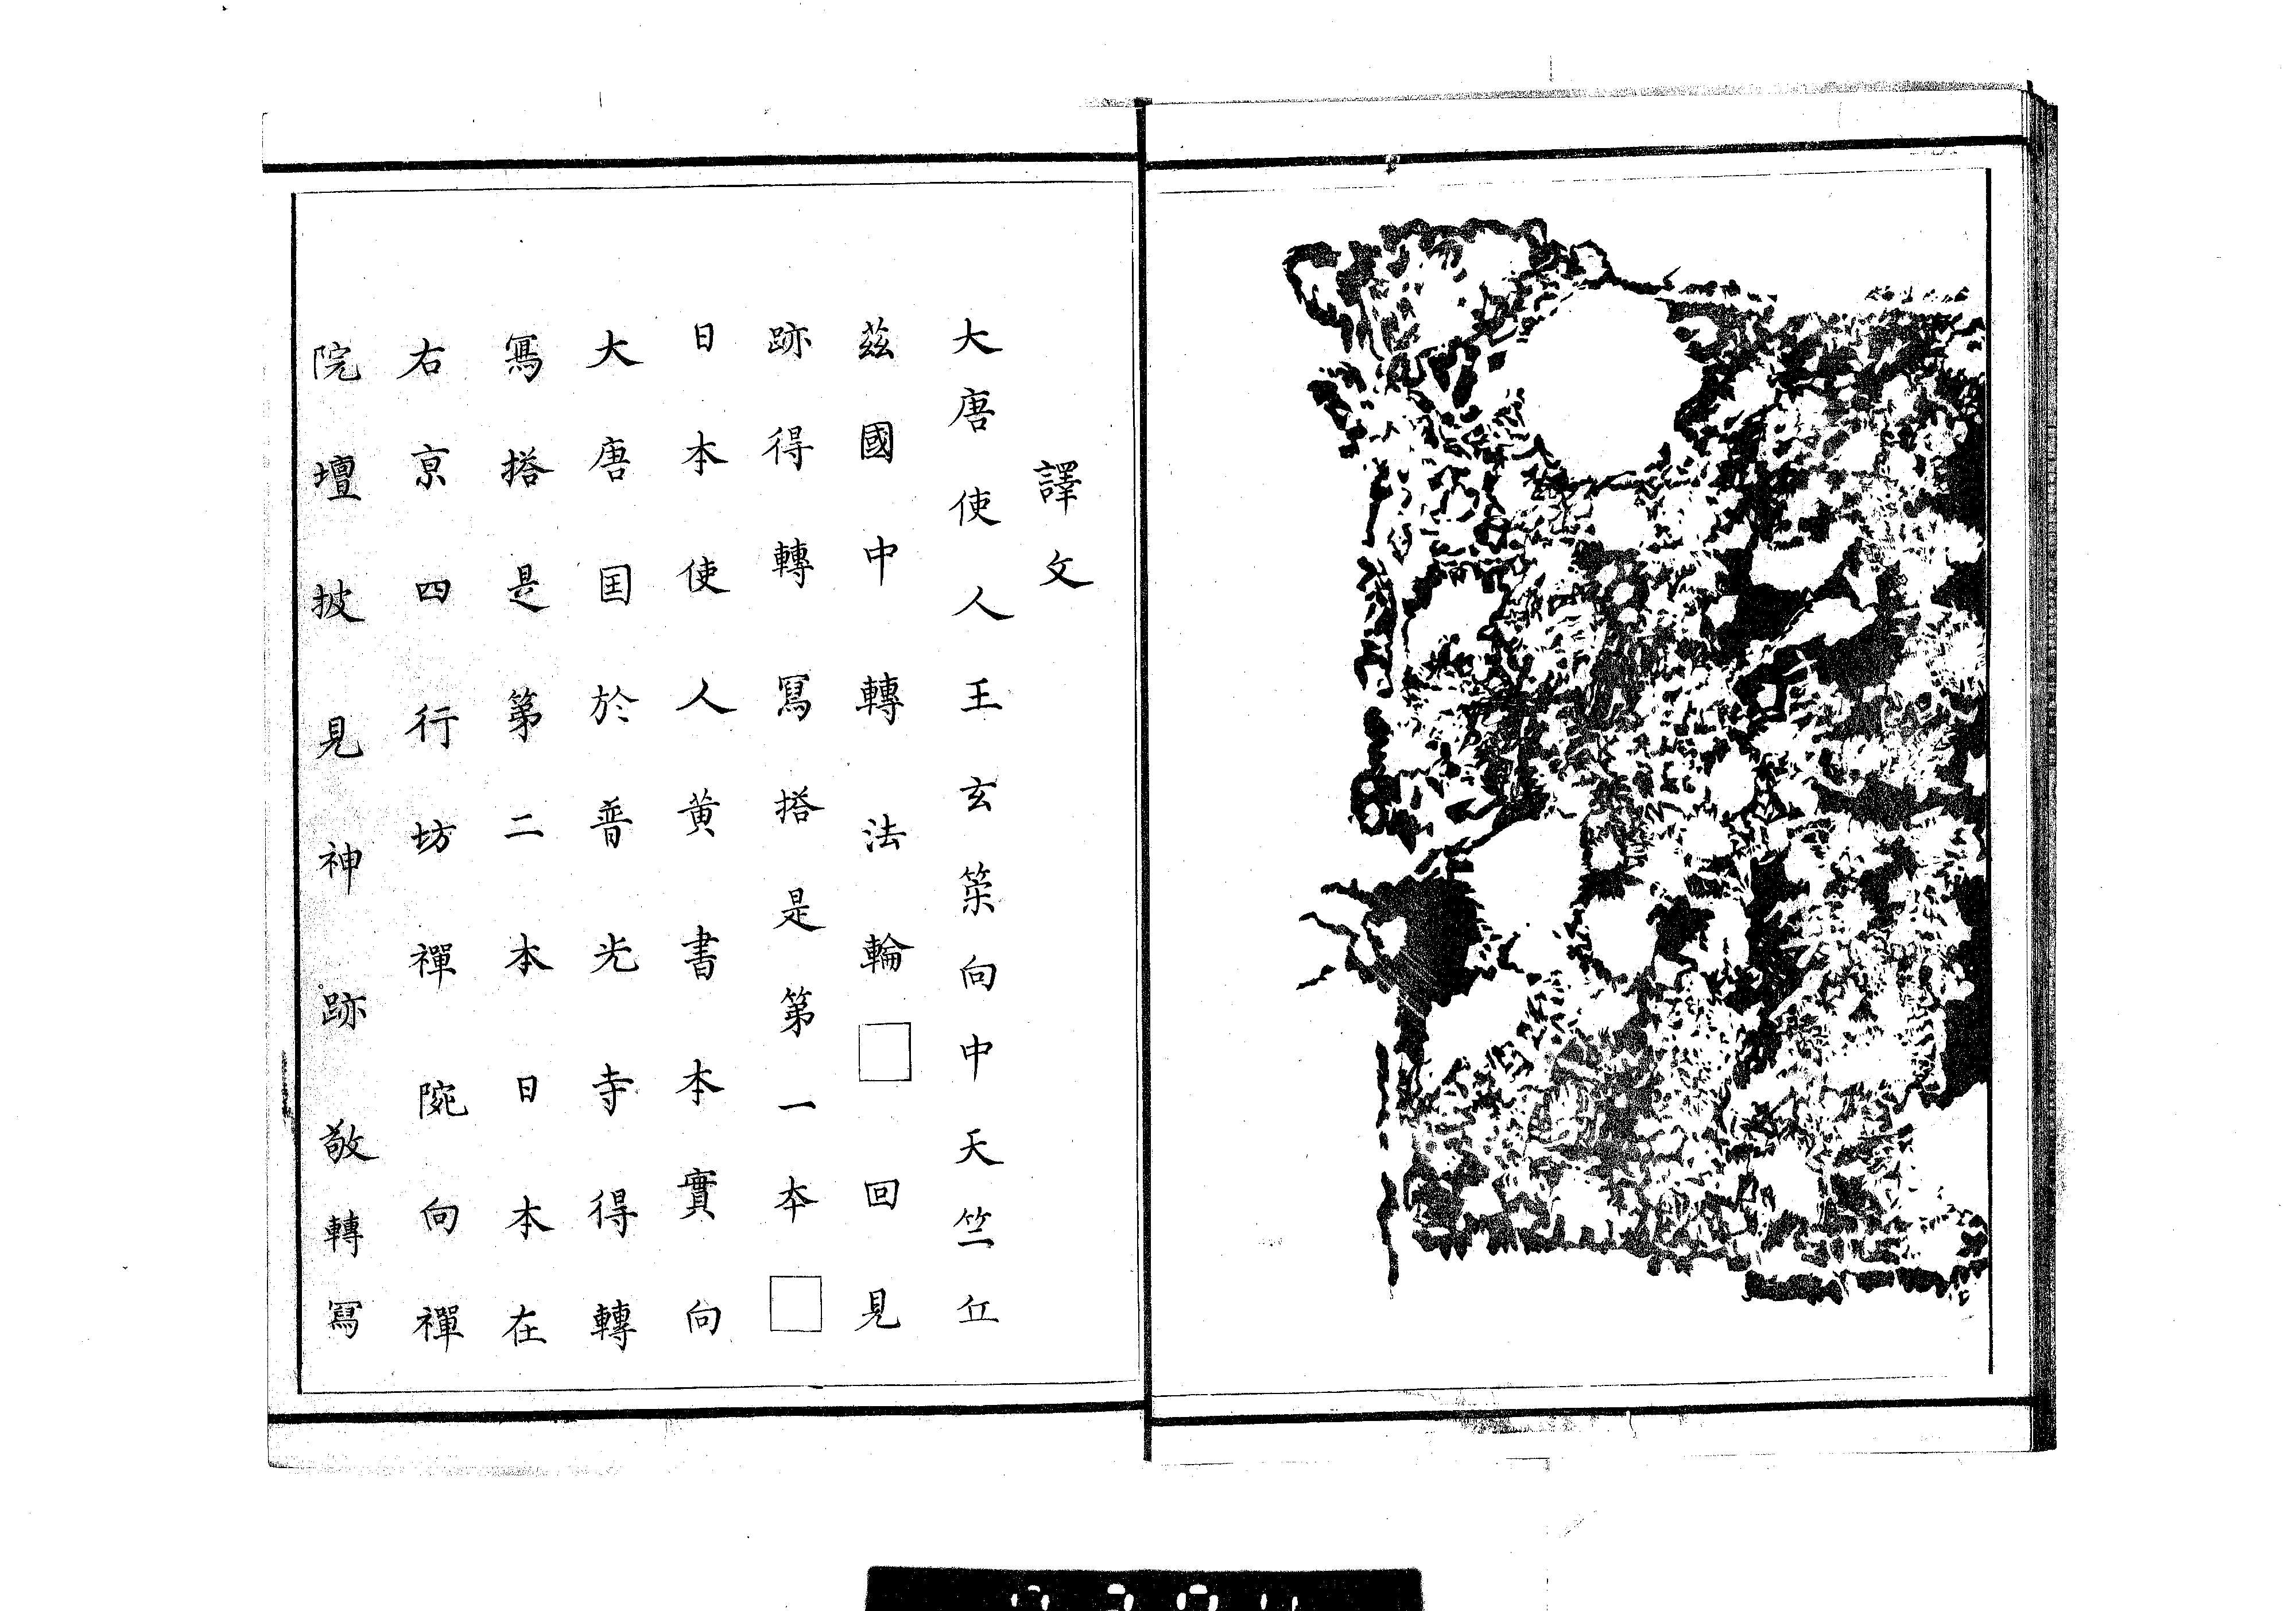 譯文
大唐使人王玄筞向中天竺𠀉
茲國中轉法輪□回見
跡得轉冩搭是第一本□
日本使人黄書本實向
大唐国於普光寺得轉
冩搭是第二本日本在
右京四行坊禪院向禪
院壇披見神跡敬轉冩